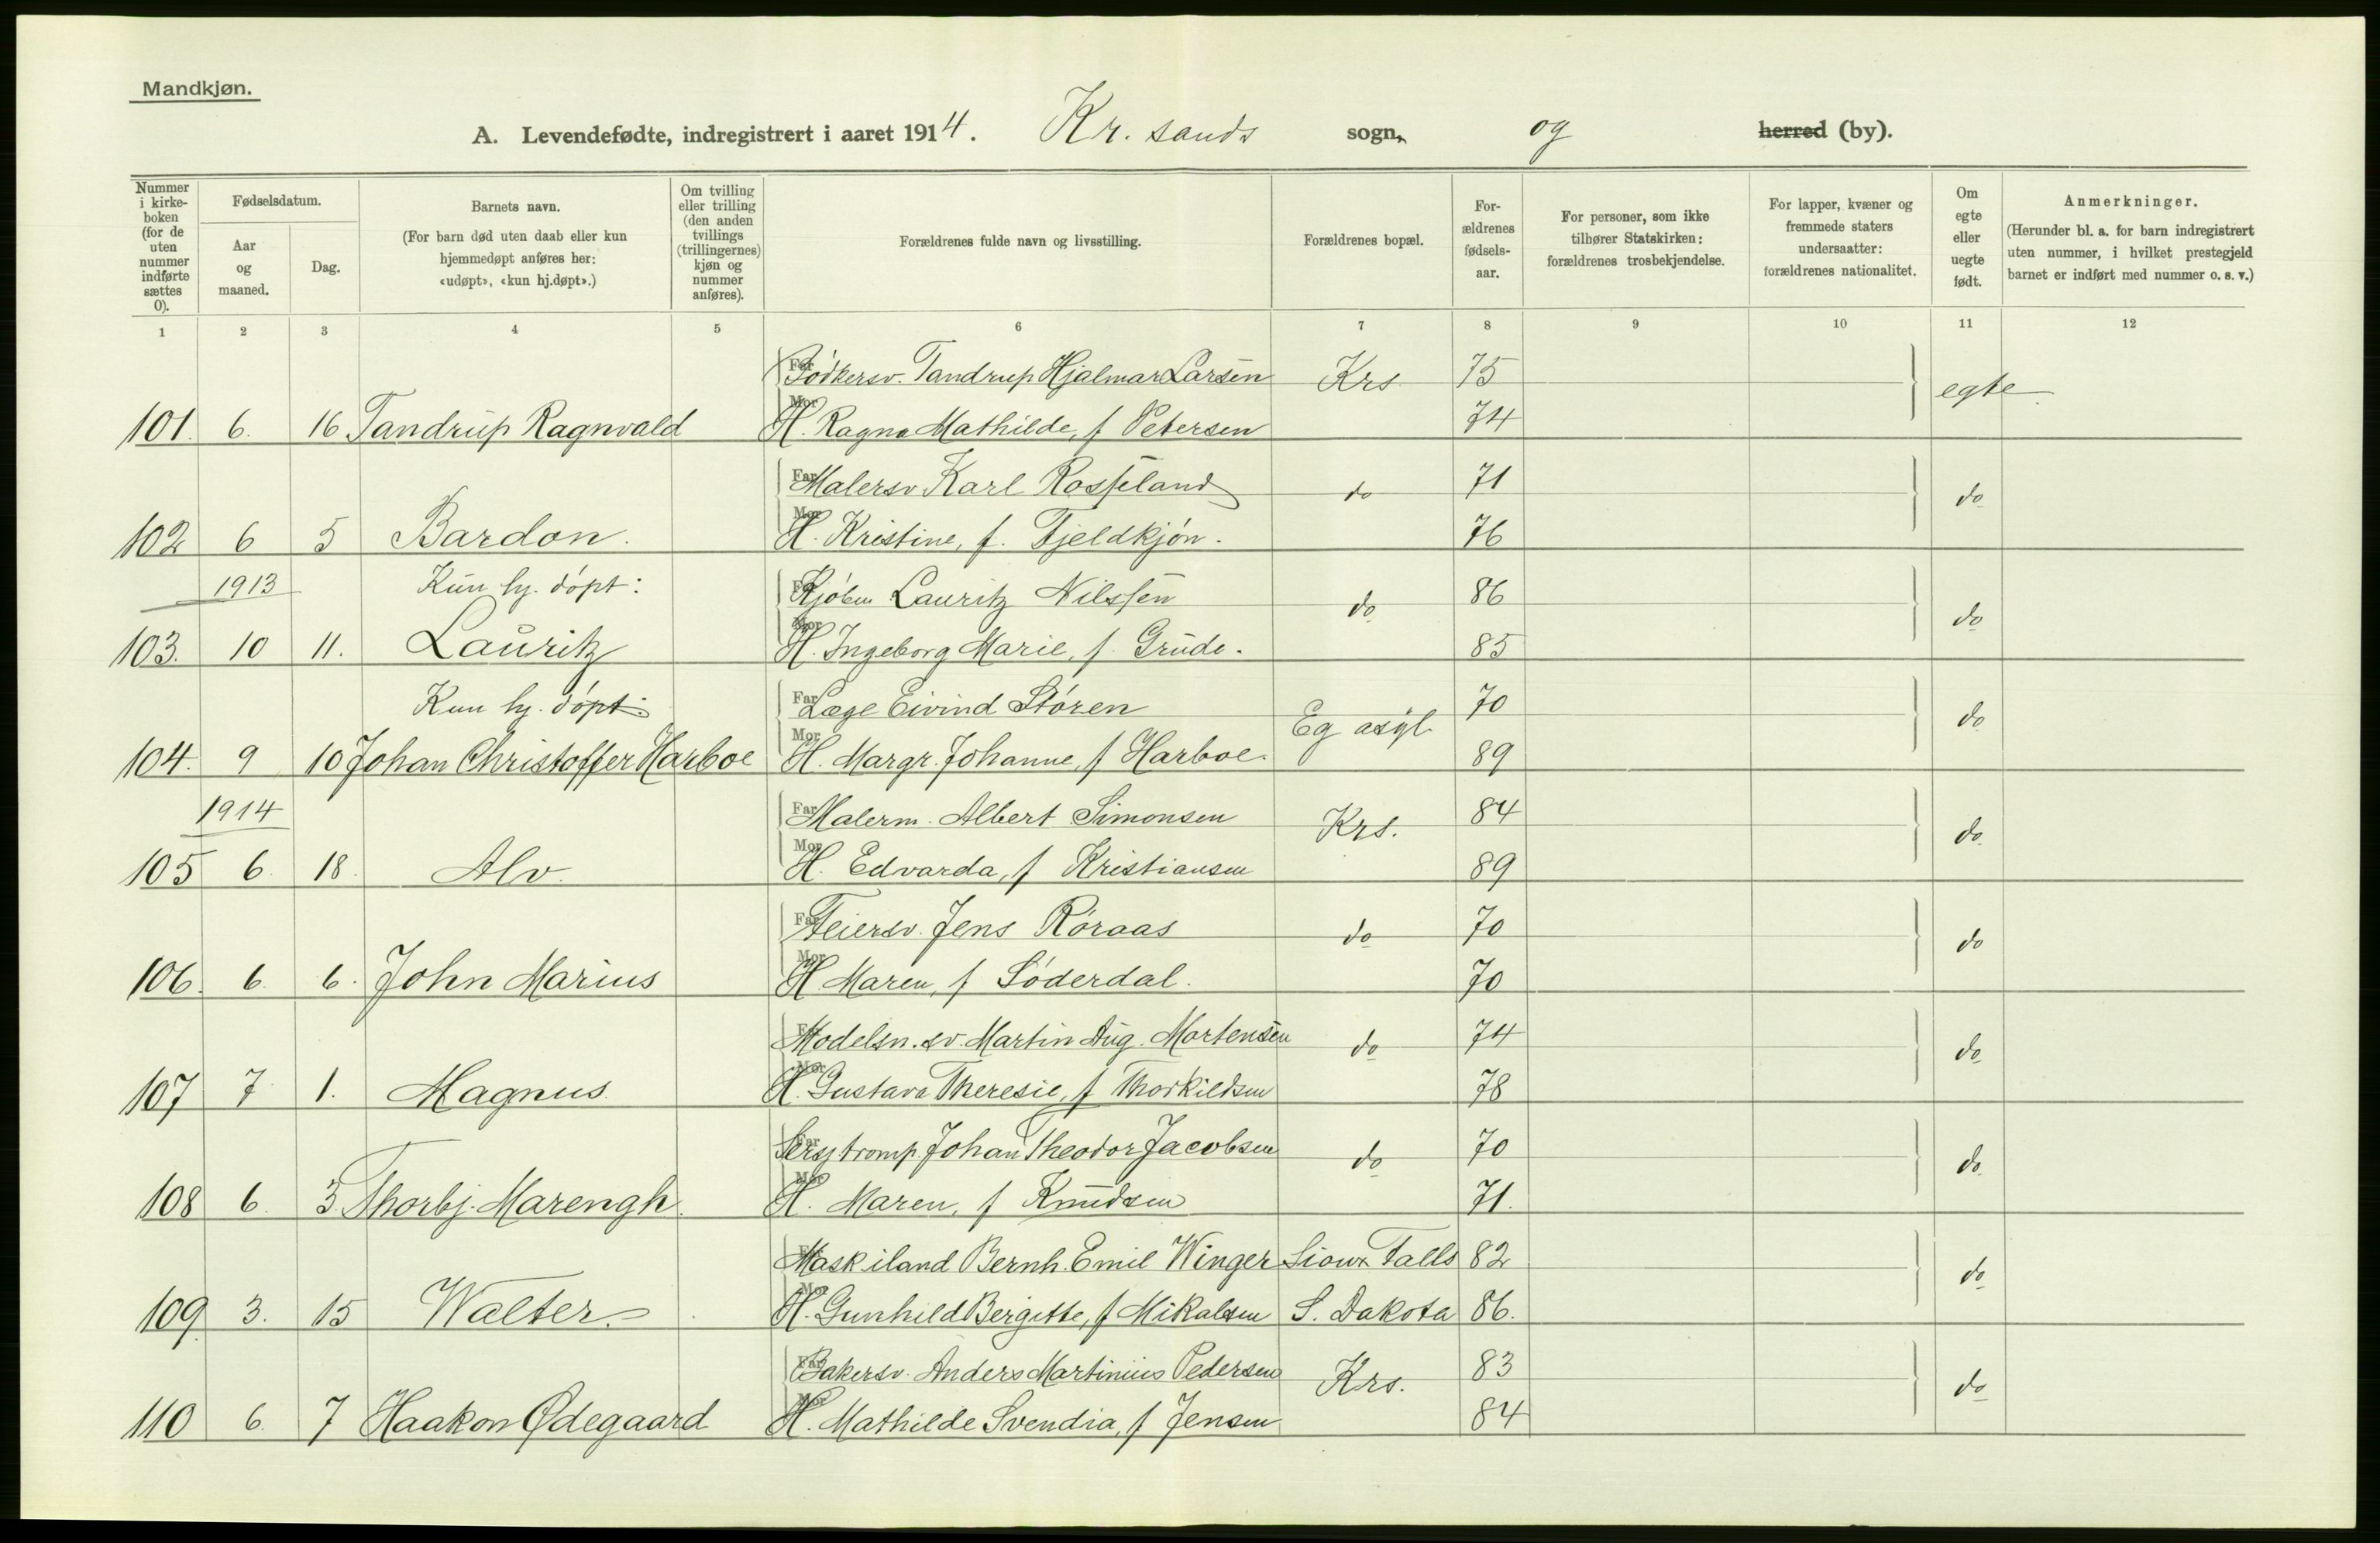 Mandkjøn.
A. Levendefødte, indregistrert i aaret 1914. Kr. sands sogn, og herred (by).
Nummer i kirkeboken (for de uten nummer indførte sættes 0).
Fødselsdatum.
Aar og maaned.
Dag.
Barnets navn.
(For barn død uten daab eller kun hjemmedøpt anføres her: «udøpt», «kun hj.døpt».)
Om tvilling eller trilling (den anden tvillings (trillingernes) kjøn og nummer anføres).
Forældrenes fulde navn og livsstilling.
Forældrenes bopæl.
Forældrenes fødselsaar.
For personer, som ikke tilhører Statskirken: forældrenes trosbekjendelse.
For lapper, kvæner og fremmede staters undersaatter: forældrenes nationalitet.
Om egte eller uegte født.
Anmerkninger.
(Herunder bl. a. for barn indregistrert uten nummer, i hvilket prestegjeld barnet er indført med nummer o. s. v.)
1 2 3 4 5 6 7 8 9 10 11 12
Far Bödkersv. Tandrup Hjalmar Larsen Krs 75 egte
101. 6. 16 Tandrup Ragnvald Mor H. Ragna Mathilde, f Petersen 74
Far Malersv Karl Rosseland do 71 do
102 6 5 Bardon. Mor H. Kristine, f. Fjeldkjön. 76
1913 Kun hj. döpt: Far Kjöbm Lauritz Nilssen do 86 do
103. 10 11. Lauritz Mor H. Ingeborg Marie, f. Grude. 85
Kun hj. döpt: Far Læge Eivind Stören Eg asyl 70 do
104. 9 10 Johan Christoffer Harboe Mor H. Margr. Johanne, f Harboe. 89
1914 Far Malerm. Albert Simonsen Krs. 84 do
105 6. 18. Alv. Mor H. Edvarda, f Kristiansen 89
Far Feiersv. Jens Röraas do 70 do
106. 6. 6. John Marius Mor H. Maren, f Söderdal. 70
Far Modelsn. sv. Martin Aug. Mortensen do 74 do
107 7. 1. Magnus. Mor H. Gustava Theresie, f Thorkildsen 78
Far Johan Theodor Jacobsen do 70 do
108 6. 3. Thorbj. Marengh. Mor H. Maren, f Knudsen 71.
Far Bernh. Emil Winger Sioux Falls 82 do
109. 3. 15 Walter. Mor H. Gunhild Bergitte, f Mikalsen S. Dakota 86.
Far Bakersv. Anders Martinius Pedersen Krs. 83 do
110 6. 7 Haakon Ødegaard Mor H. Mathilde Svendia, f Jensen 84